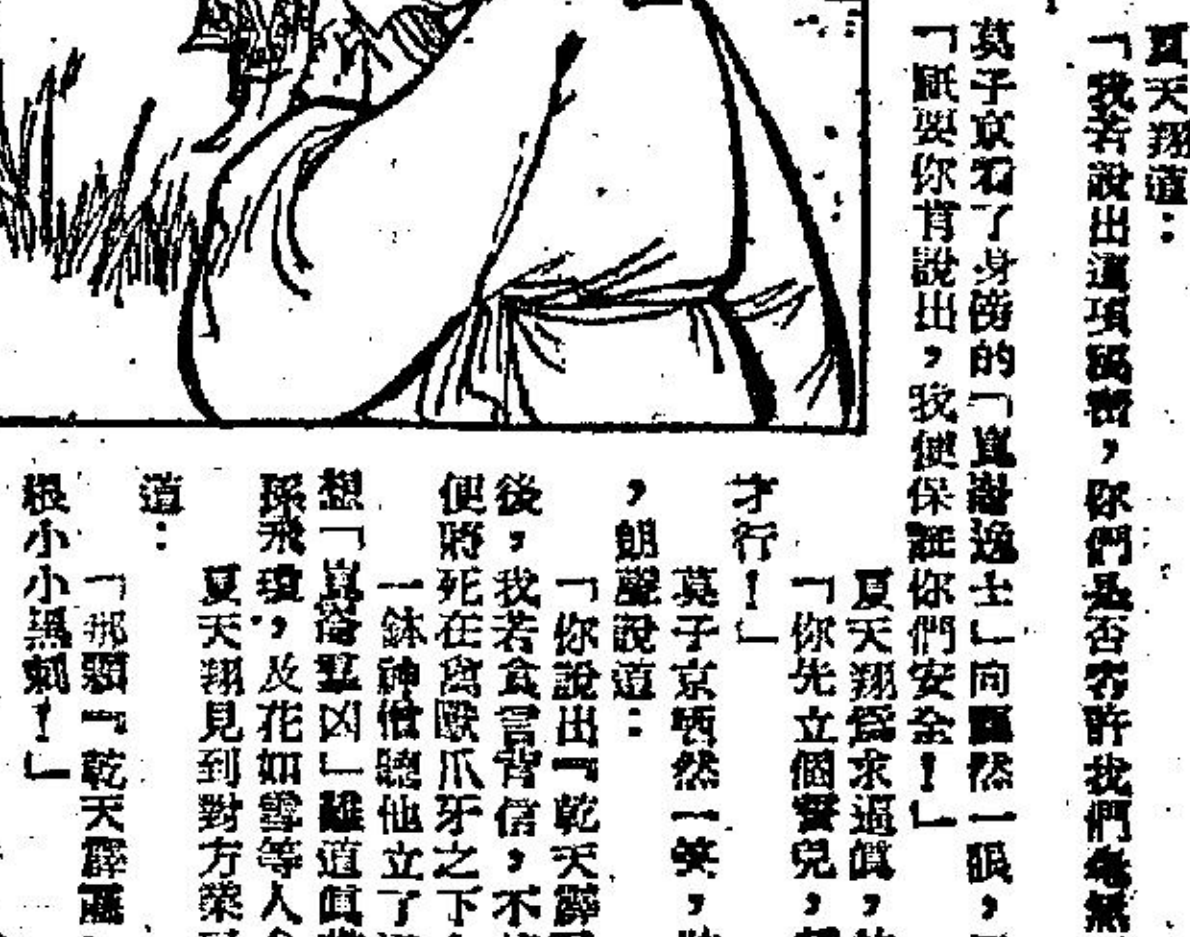 夏天翔道：
「我若說出這項秘密，你們是否容許我們毫無
莫子京看了身傍的「崑崙逸士」向飄然一眼，
「祇要你肯說出，我便保証你們安全！」
夏天翔爲求逼眞，
「你先立個誓兒，
才行！」
莫子京哂然一笑，
，朗聲說道：
「你說出『乾天霹
後，我若食言背信，不
便將死在寓獸爪牙之下
一鉢神僧聽他立了
想「崑崙羣凶」難道眞
孫飛瓊，及花如雪等人
夏天翔見到對方榮
道：
「那顆『乾天霹靂
根小小黑刺！」